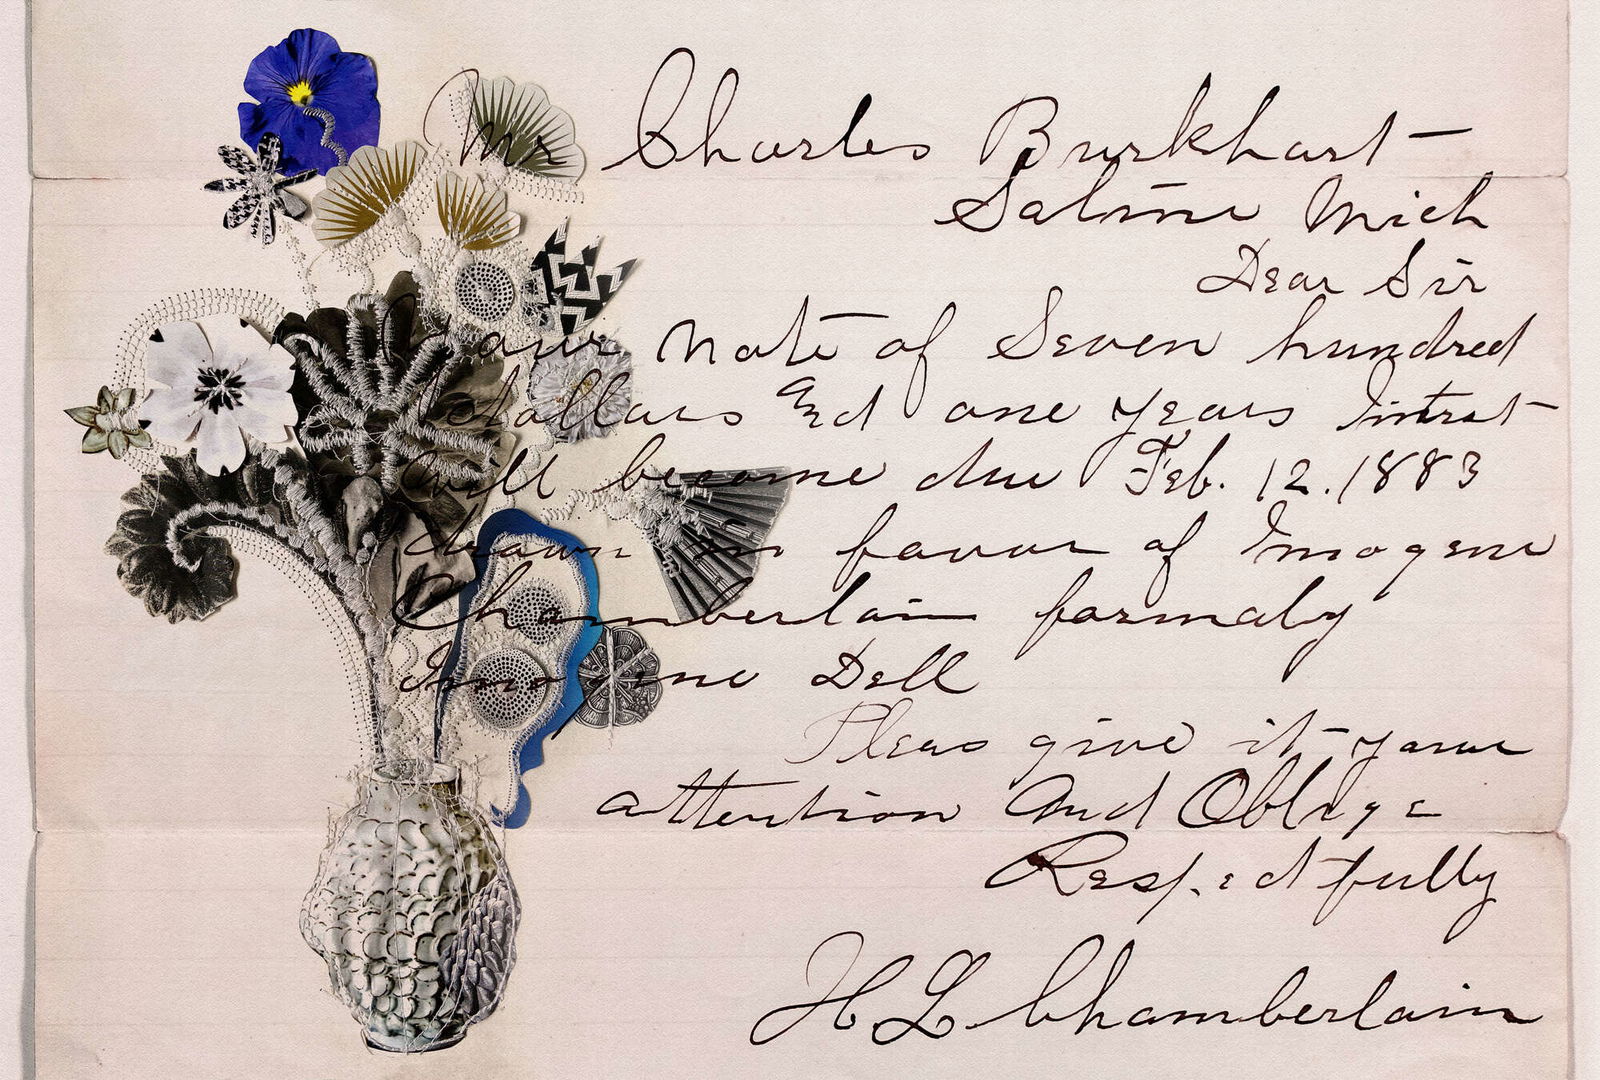 Mr Charles Burkhart
Saline Mich
Dear Sir
Your Note of Seven hundred
dollars and one years Intrst
Will become due Feb. 12. 1883
drawn in favour of Imogene
Chamberlain formaly
Imogene Dell
Pleas give it your
attention And Oblige
Respectfully
H L Chamberlain